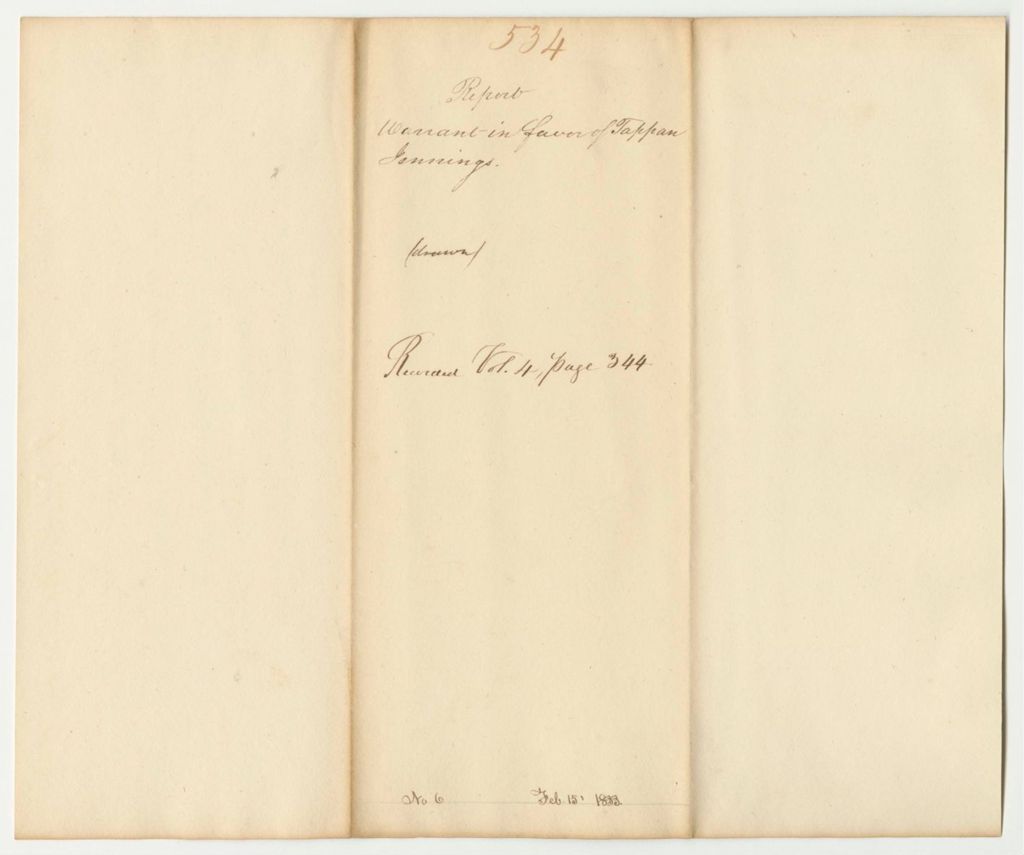 534
Report
Warrant in favor of Tappan
Jennings.
(drawn)
Recorded Vol. 4, page 344
No 6 Feb. 15' 1833